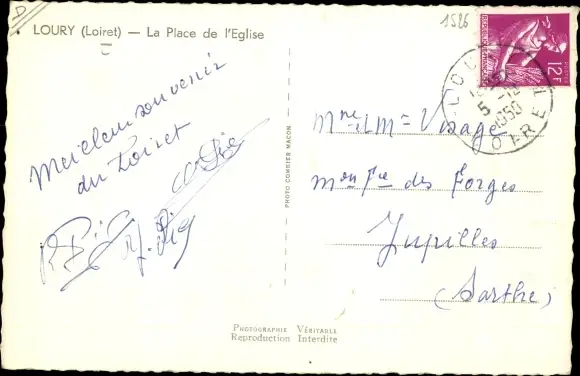 LOURY (Loiret) — La Place de l'Eglise
1526
12F
LOURY
5 -12
1958
LOIRET
Meilleur souvenir
du Loiret
PHOTO COMBIER MACON
Mme et Mr Visage
des Forges
Jupilles
(Sarthe)
PHOTOGRAPHIE VÉRITABLE
Reproduction Interdite